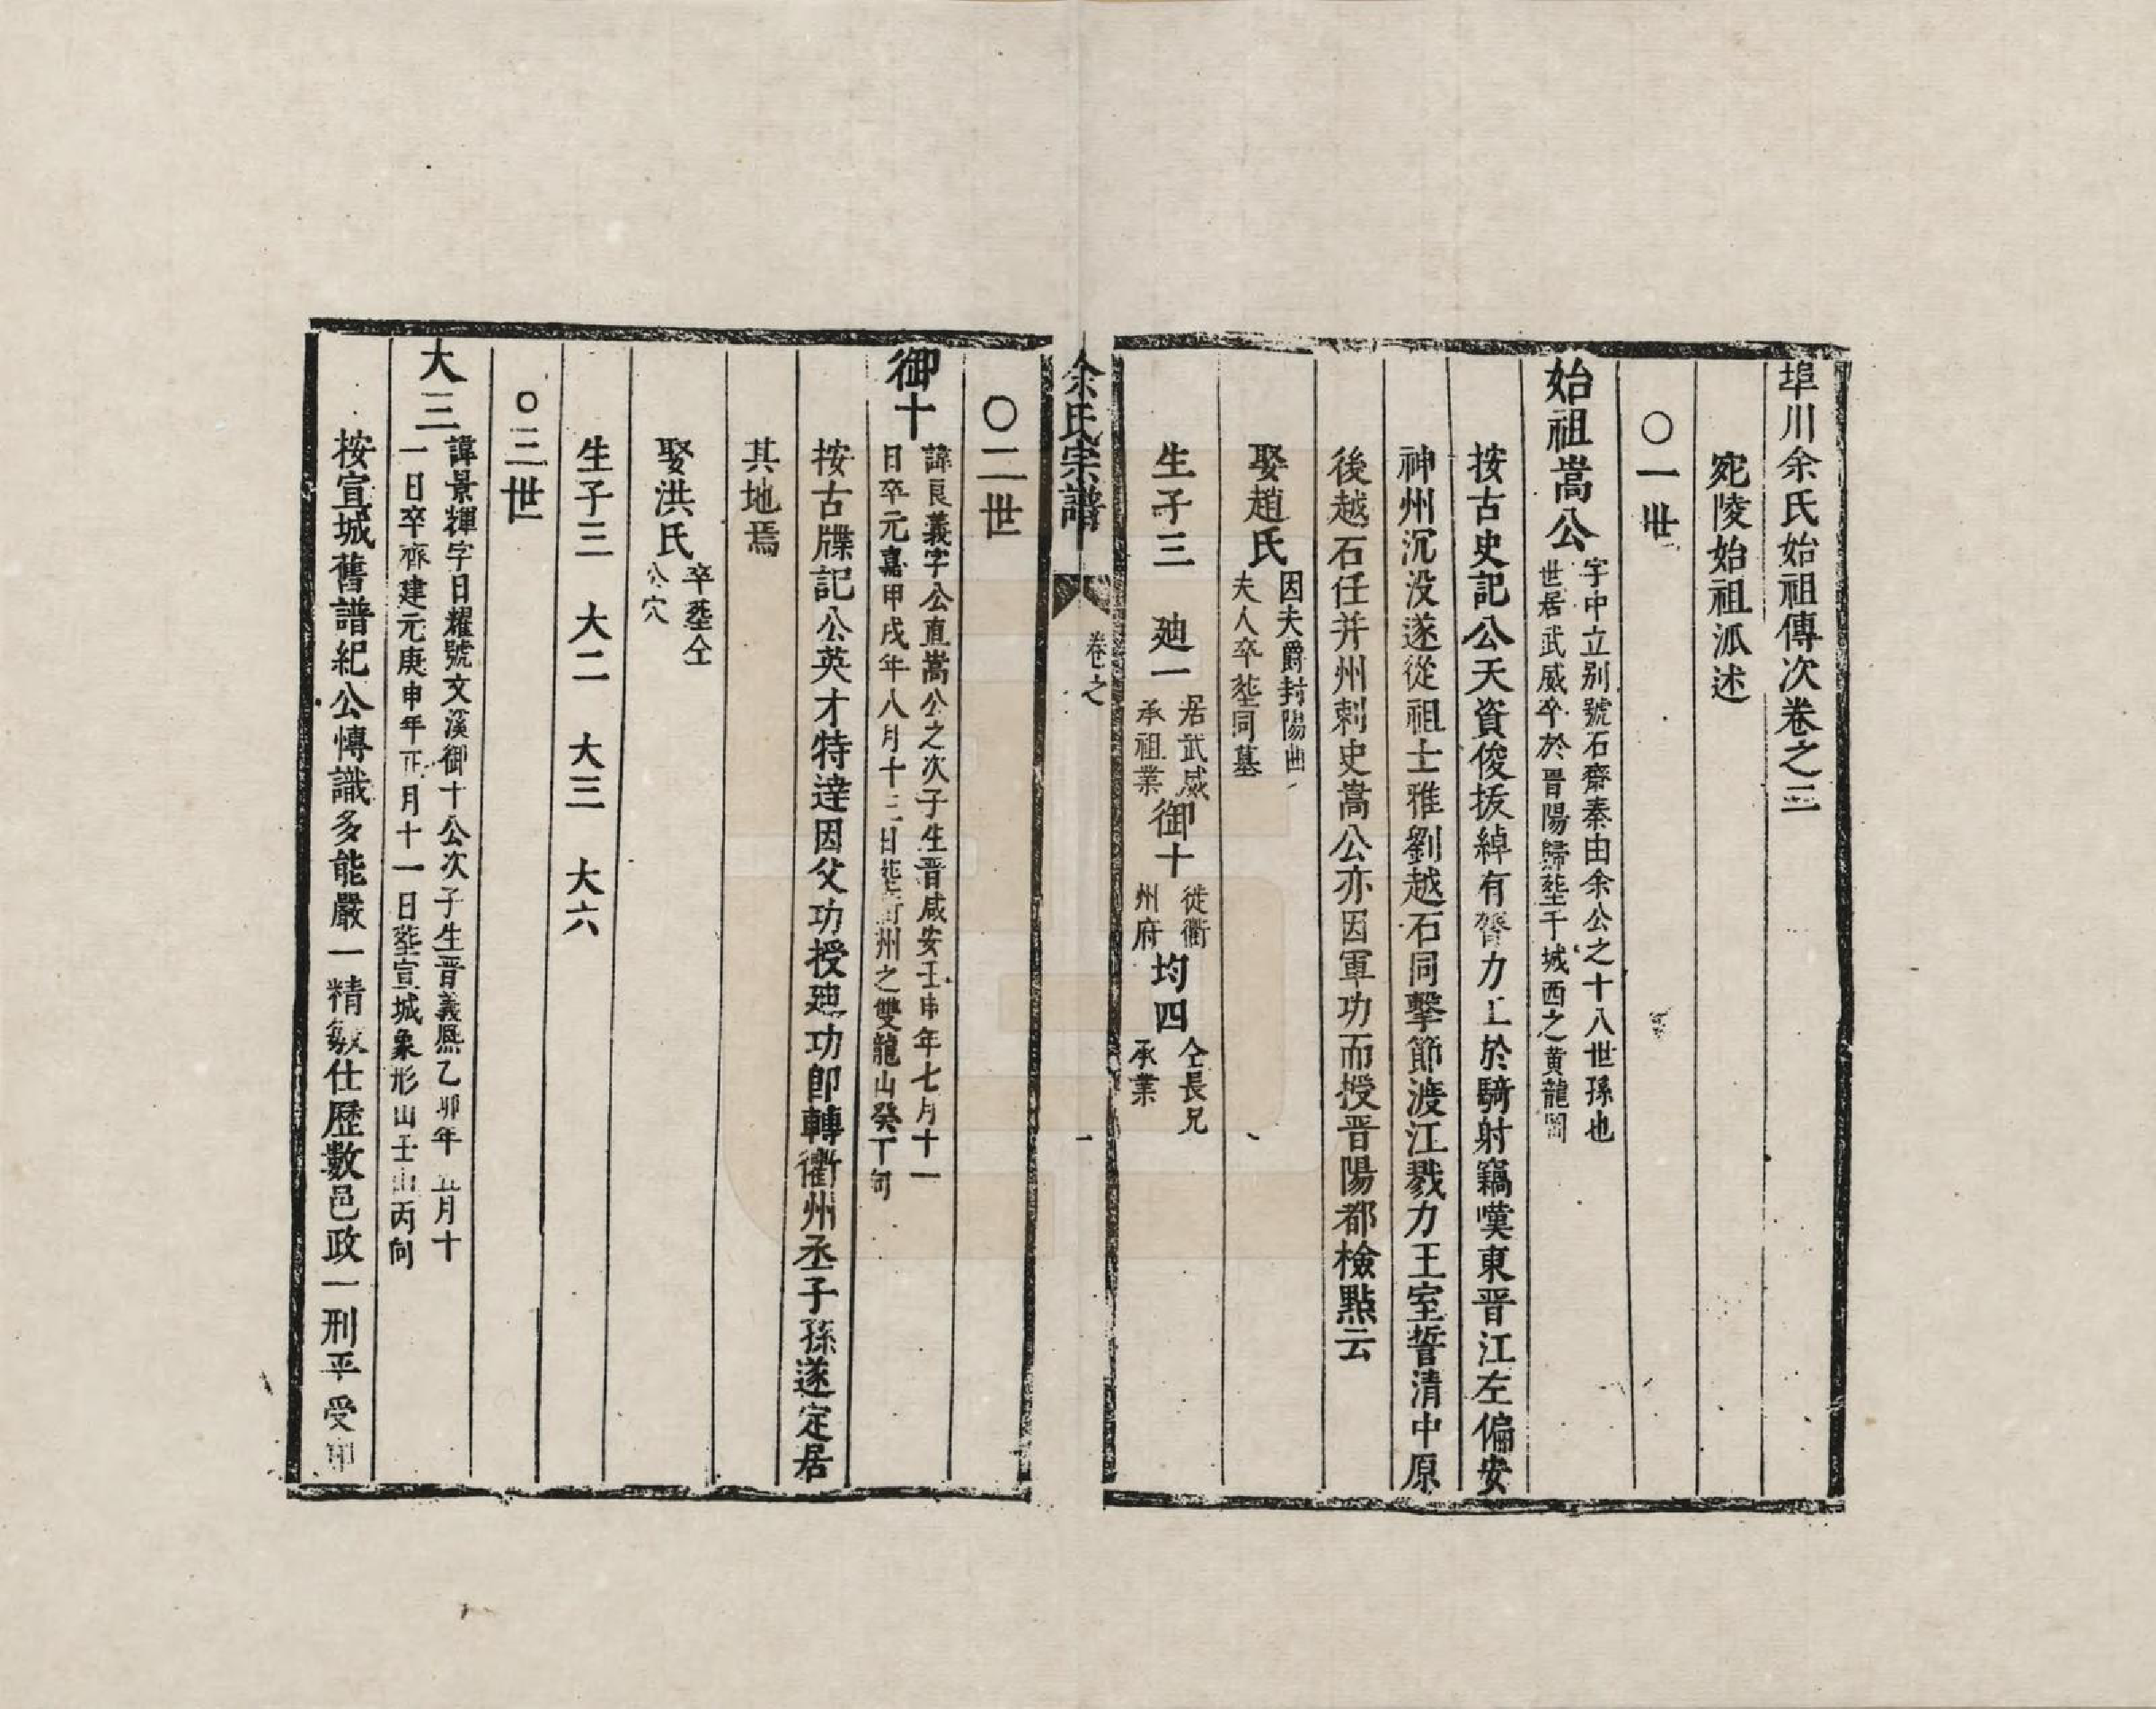 埠川余氏始祖傳次卷之三
宛陵始祖派述
〇一世
始祖嵩公
字中立别號石齋秦由余公之十八世孫也
世居武威卒於晋陽歸塟于城西之黄龍岡
按古史記公天資俊拔綽有膂力工於騎射竊嘆東晋江左偏安
神州沉没遂從祖士雅劉越石同擊節渡江戮力王室誓清中原
後越石任并州刺史嵩公亦因軍功而授晋陽都檢點云
娶趙氏
因夫爵封陽曲
夫人卒塟同墓
生子三 廸一
居武威
承祖業
御十
徙衢
州府
均四
仝長兄
承業
余氏宗譜 卷之 一
〇二世
御十
諱良義字公直嵩公之次子生晋咸安壬申年七月十一
日卒元嘉甲戌年八月十二日塟衢州之雙龍山癸丁向
按古牒記公英才特達因父功授廸功郎轉衢州丞子孫遂定居
其地焉
娶洪氏
卒塟仝
公穴
生子三 大二 大三 大六
〇三世
大三
諱景輝字日耀號文溪御十公次子生晋義熈乙卯年五月十
一日卒齊建元庚申年正月十一日塟宣城象形山壬山丙向
按宣城舊譜紀公慱識多能嚴一精敏仕歷數邑政一刑平受